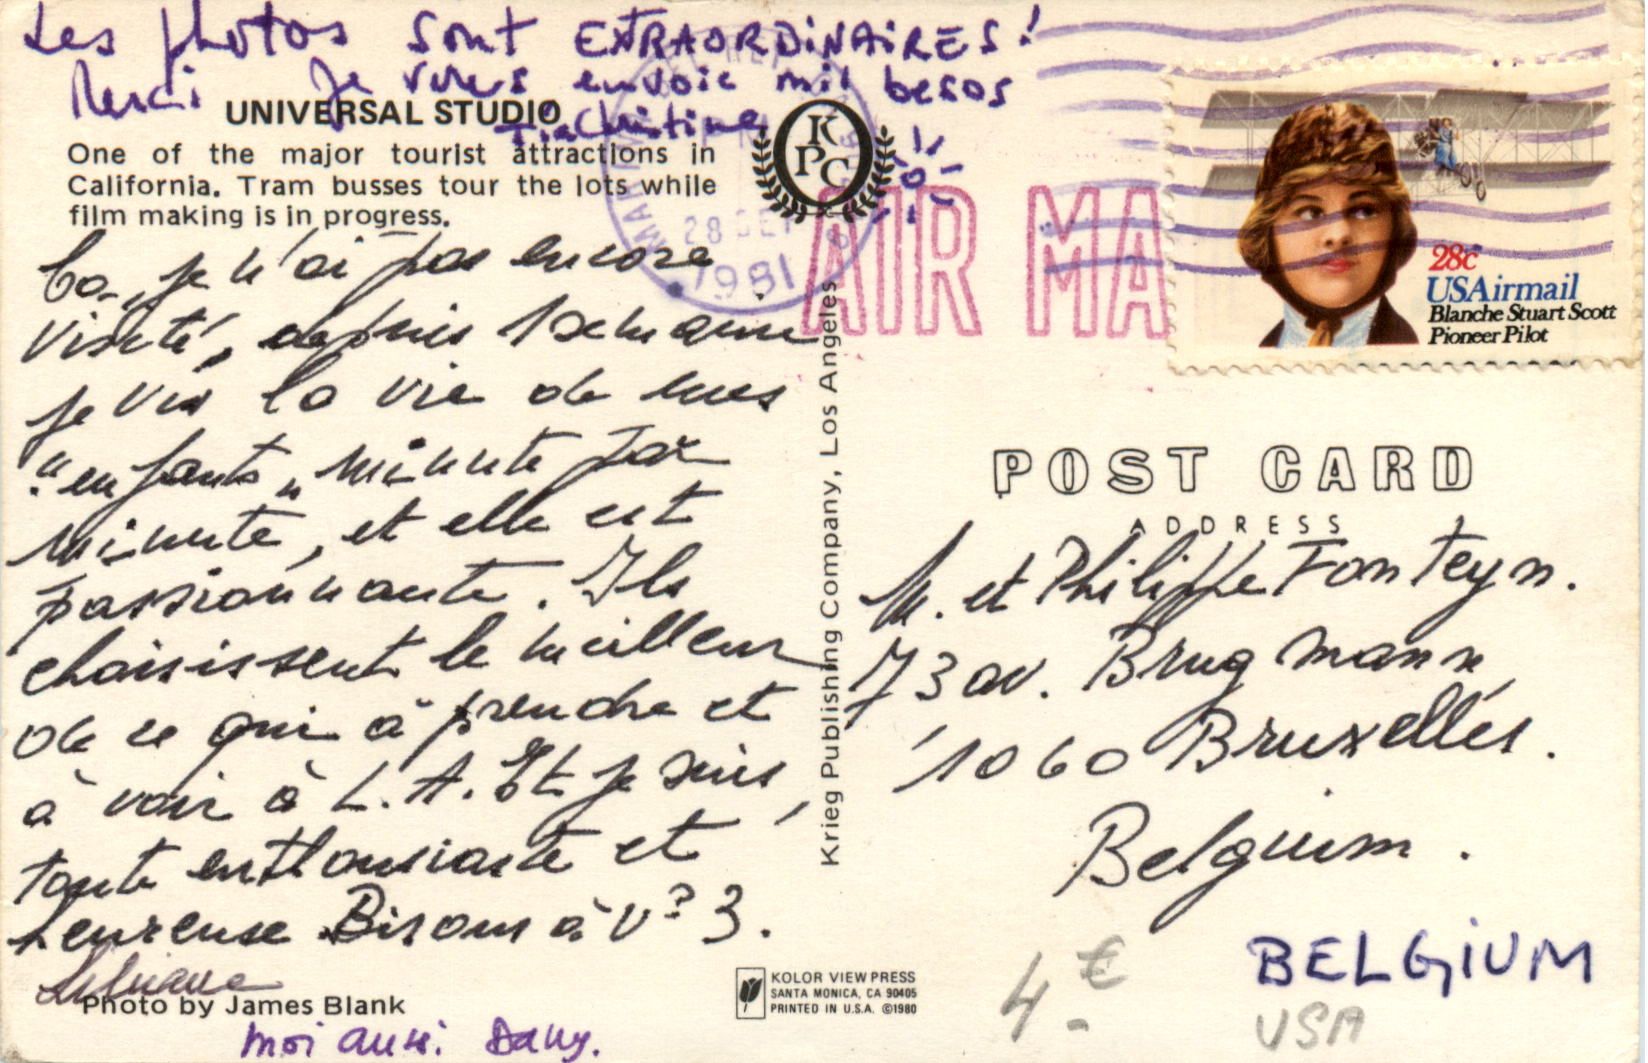 Les photos sont EXTRAORDINAIRES!
Merci Je vous envoie mil besos
Tia Christine
UNIVERSAL STUDIO
One of the major tourist attractions in
California. Tram busses tour the lots while
film making is in progress.
Ça, je n'ai pas encore
visité, depuis 1 semaine
je vis la vie de mes
"enfants" minute par
minute, et elle est
passionnante. Ils
choisissent le meilleur
de ce qui à prendre et
à voir à L.A. Et je suis
toute enthousiaste et
heureuse Bisous à v? 3.
Liliane
Photo by James Blank
moi aussi. Dany.
KPC
Krieg Publishing Company, Los Angeles
KOLOR VIEW PRESS
SANTA MONICA, CA 90405
PRINTED IN U.S.A. ©1980
PM
28 SEP
1981
AIR MA
28c
USAirmail
Blanche Stuart Scott
Pioneer Pilot
POST CARD
ADDRESS
M. et Philippe Fonteyn.
73 av. Brugmann
1060 Bruxelles.
Belgium.
BELGIUM
4.€
USA